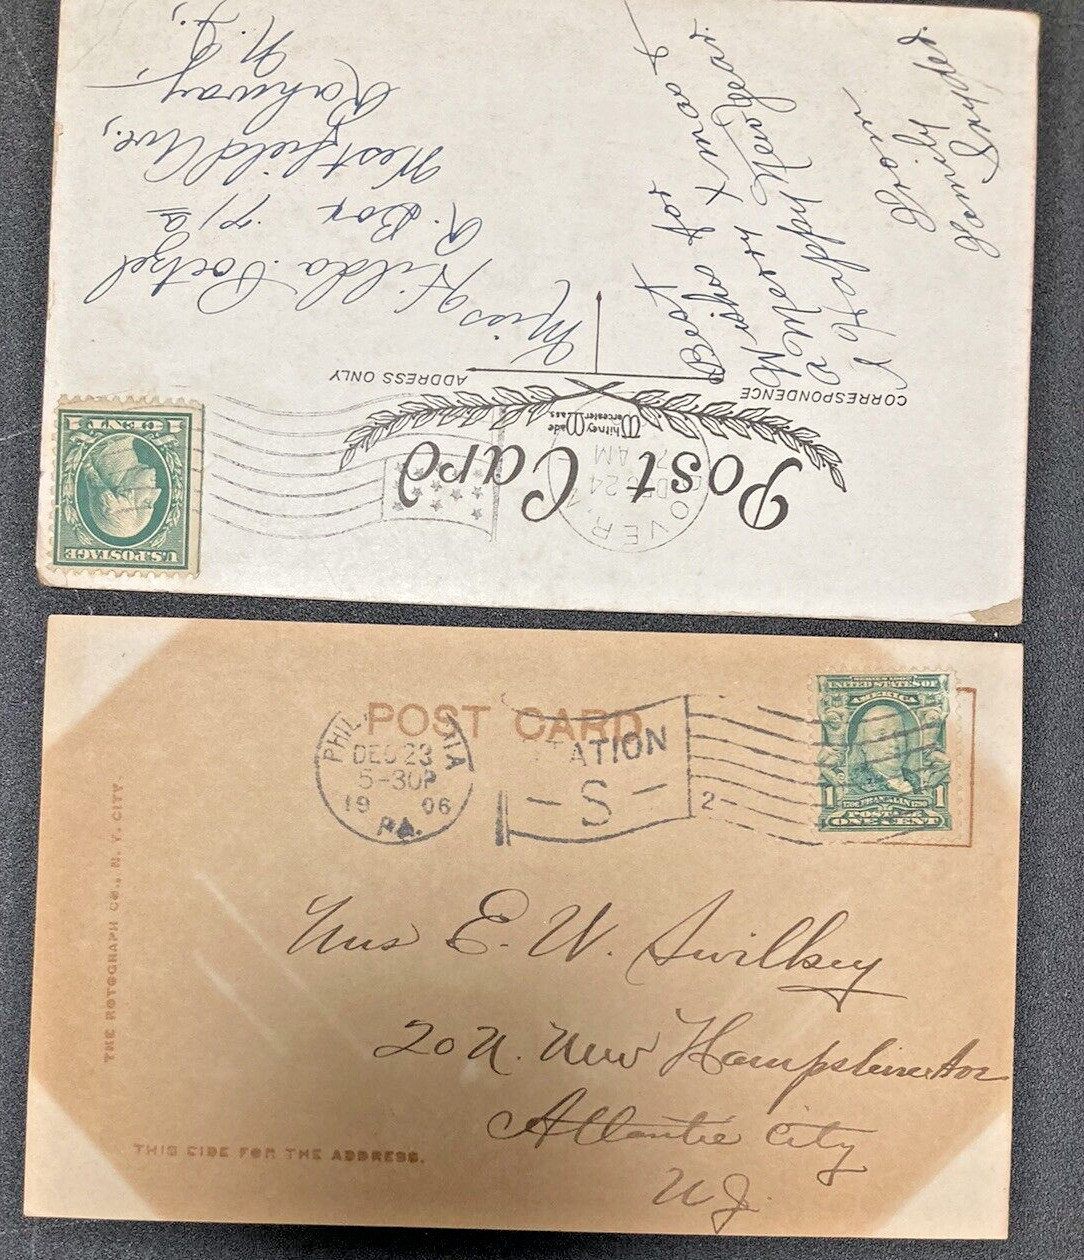 Post Card
Whitney Made
Worcester, Mass.
CORRESPONDENCE
ADDRESS ONLY
DEC 24
7 AM
U.S. POSTAGE
1 CENT 1
Best for
Wishes Xmas &
a Merry
& Happy New Year.
From
Emily
Family
Miss Hilda
R. Box 71a
Westfield Ave.,
Rahway,
N.J.
POST CARD
DEC 23
5-30P
19 06
PA.
STATION
- S -
2
SERIES 1902
UNITED STATES OF
AMERICA
1 FRANKLIN 1
POSTAGE
ONE CENT
THE ROTOGRAPH CO., N. Y. CITY
Mrs E. W.
20 N. New Hampshire Ave
Atlantic City
NJ.
THIS SIDE FOR THE ADDRESS.